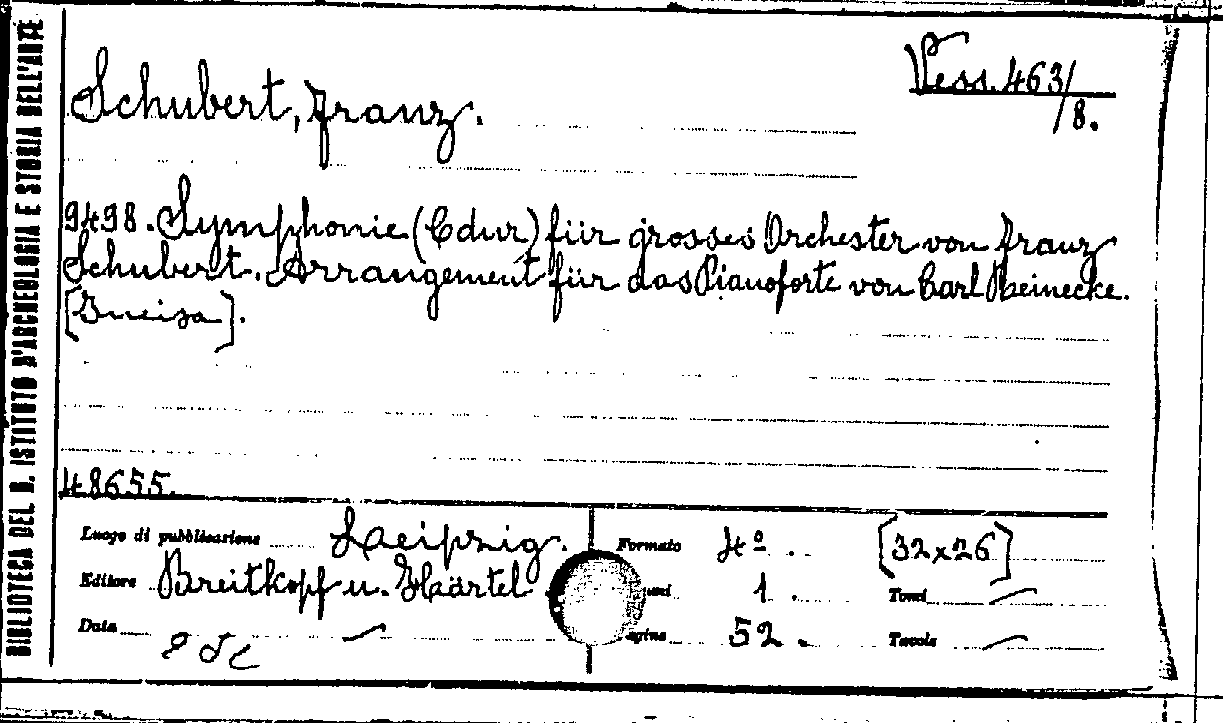 BIBLIOTECA DEL R. ISTITUTO D'ARCHEOLOGIA E STORIA DELL'ARTE
Vess. 463/
/8.
Schubert, Franz.
9498. Symphonie (C dur) für grosses Orchester von Franz
Schubert. Arrangement für das Pianoforte von Carl Reinecke.
48655.
Luogo di pubblicazione Leipzig. Formato 4º. [32x26]
Editore Breitkopf u. Haärtel 1. Tomi —
Data — 52. Tavole —